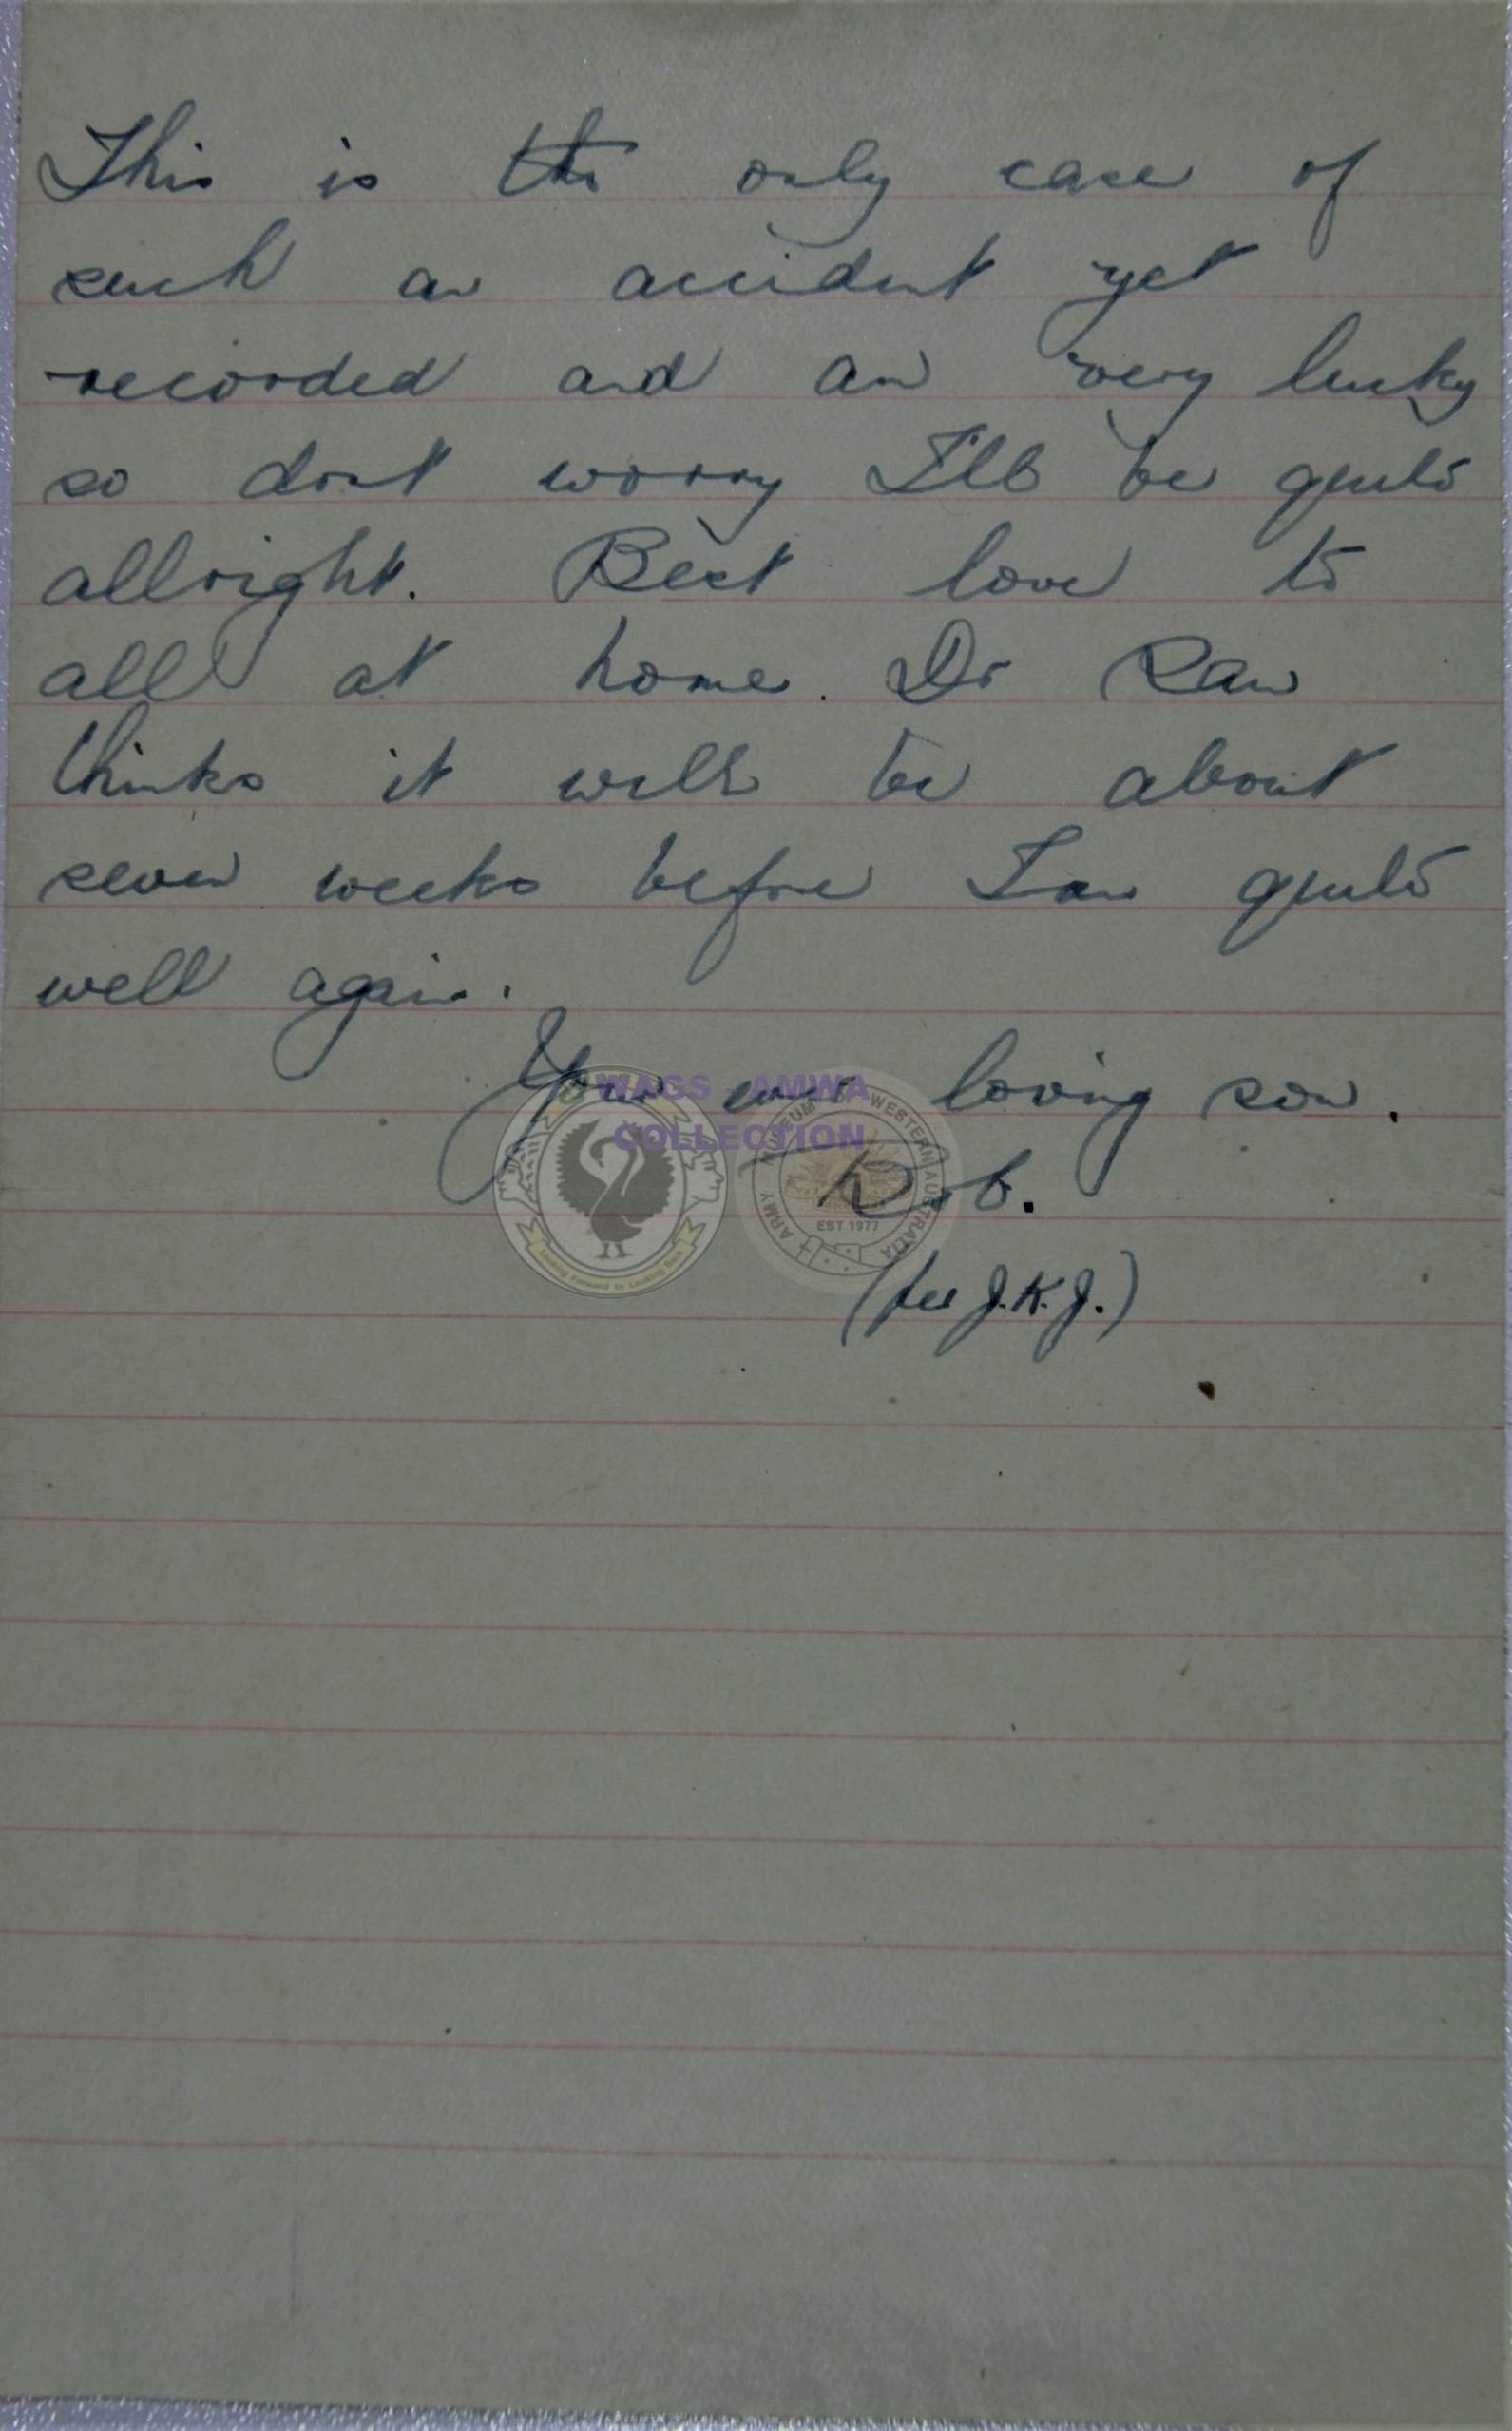 This is the only case of
such an accident yet
recorded and am very lucky
so dont worry I'll be quite
allright. Best love to
all at home. Dr Raw
thinks it will be about
seven weeks before I am quite
well again.
Your ever loving son.
Rob.
(per J.K.J.)
WAGS - AMWA
COLLECTION
ARMY MUSEUM OF WESTERN AUSTRALIA
EST 1977
Looking Forward to Looking Back